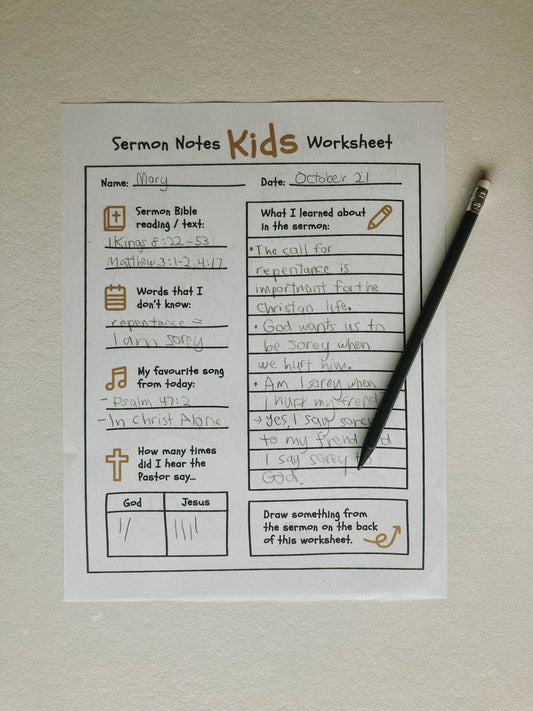 Sermon Notes Kids Worksheet
Name: Mary
Date: October 21
Sermon Bible
reading / text:
1 Kings 8:22-53
Matthew 3:1-2, 4:17
Words that I
don't know:
repentance =
I am sorey
My favourite song
from today:
- Psalm 47:2
- In Christ Alone
How many times
did I hear the
Pastor say...
God
Jesus
What I learned about
in the sermon:
• The call for
repentance is
important for the
christan life.
• God wants us to
be sorey when
we hurt him.
• Am I sorey when
I hurt my friend
→ yes, I say sorey
to my friend
I say sorey to
God.
Draw something from
the sermon on the back
of this worksheet.